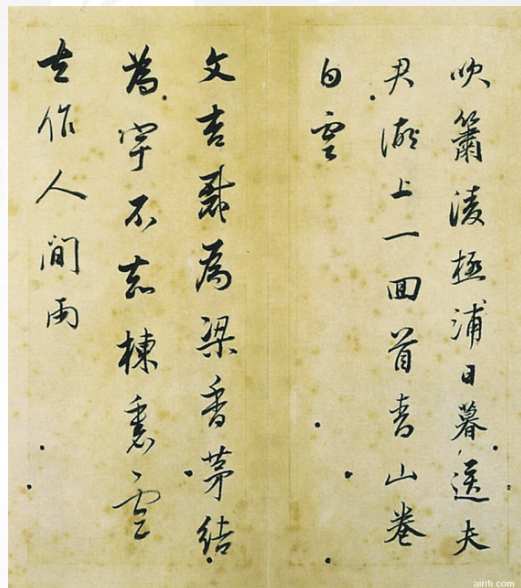 吹簫淩極浦日暮送夫
君湖上一回首青山卷
白雲
文杏裁為梁香茅結
為宇不知棟裏雲
去作人間雨
airiti.com